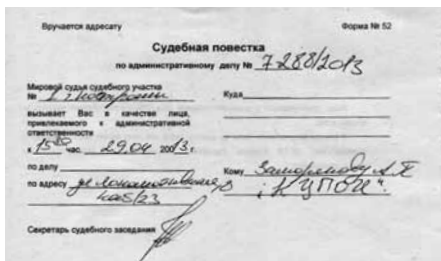 Вручается адресату
Форма № 52
Судебная повестка
по административному делу № 7-288/2013
Мировой судья судебного участка
№ 1 г. Костромы
вызывает Вас в качестве лица,
привлекаемого к административной
ответственности
к 15 00 час. 29.04 2013 г.
по делу
по адресу
каб/23
Секретарь судебного заседания
Куда
Кому